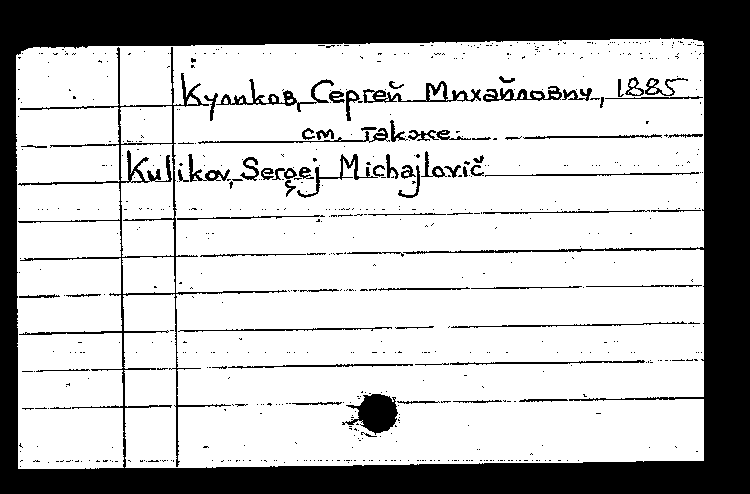 Куликов, Сергей Михайлович, 1885
см. также:
Kulikov, Sergej Michajlovič